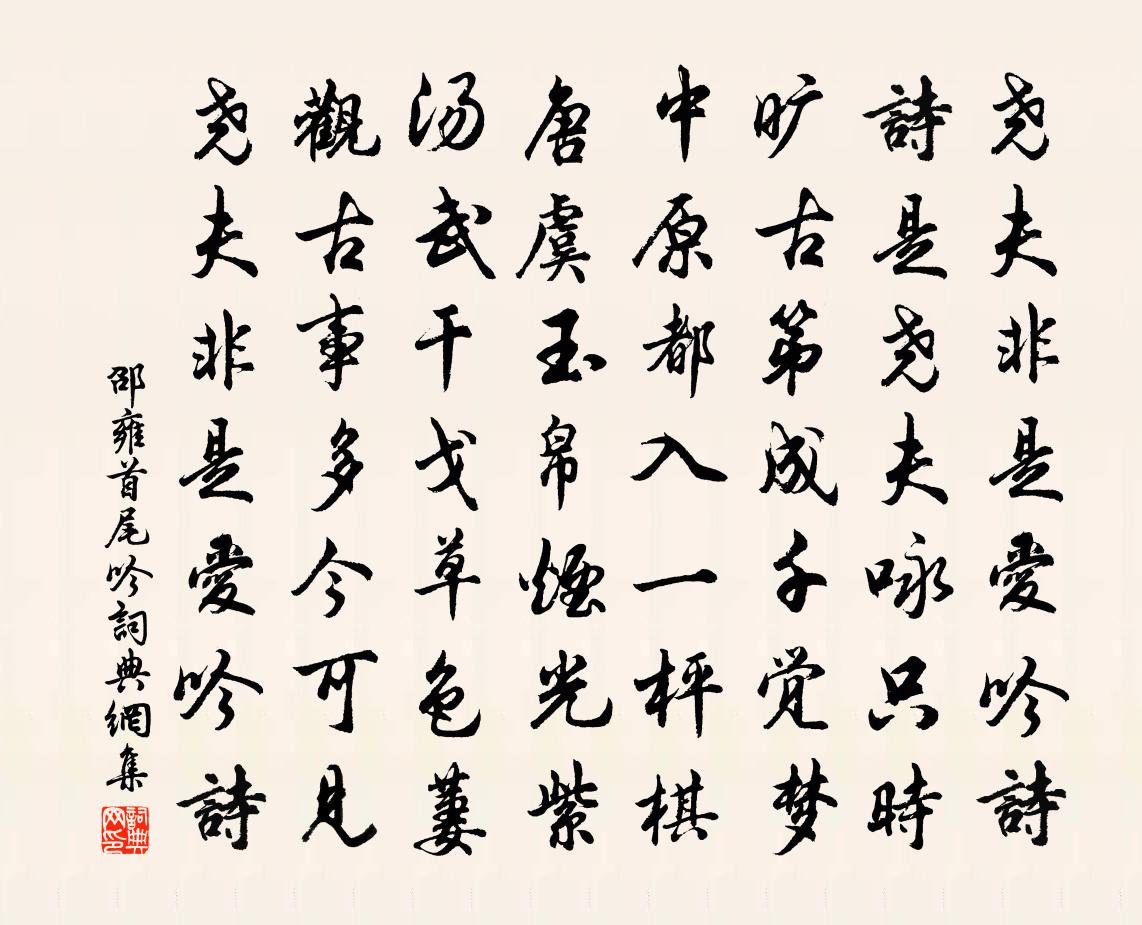 尧夫非是愛吟詩
詩是尧夫咏只時
旷古第成千觉梦
中原都入一枰棋
唐虞玉帛煙光紫
汤武干戈草色萋
觀古事多今可見
尧夫非是愛吟詩
邵雍首尾吟詞典網集
詞典
网印